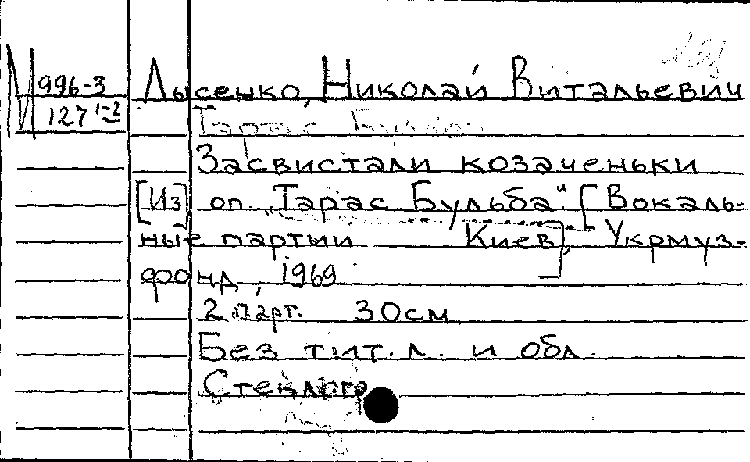 М 996-3
127 1-2
Лысенко, Николай Витальевич
Тарас Бульба
Засвистали козаченьки
[Из] оп. „Тарас Бульба". [Вокаль-
ные партии Киев], Укрмуз-
фонд, 1969
2 парт. 30см
Без тит. л. и обл.
Стеклогр